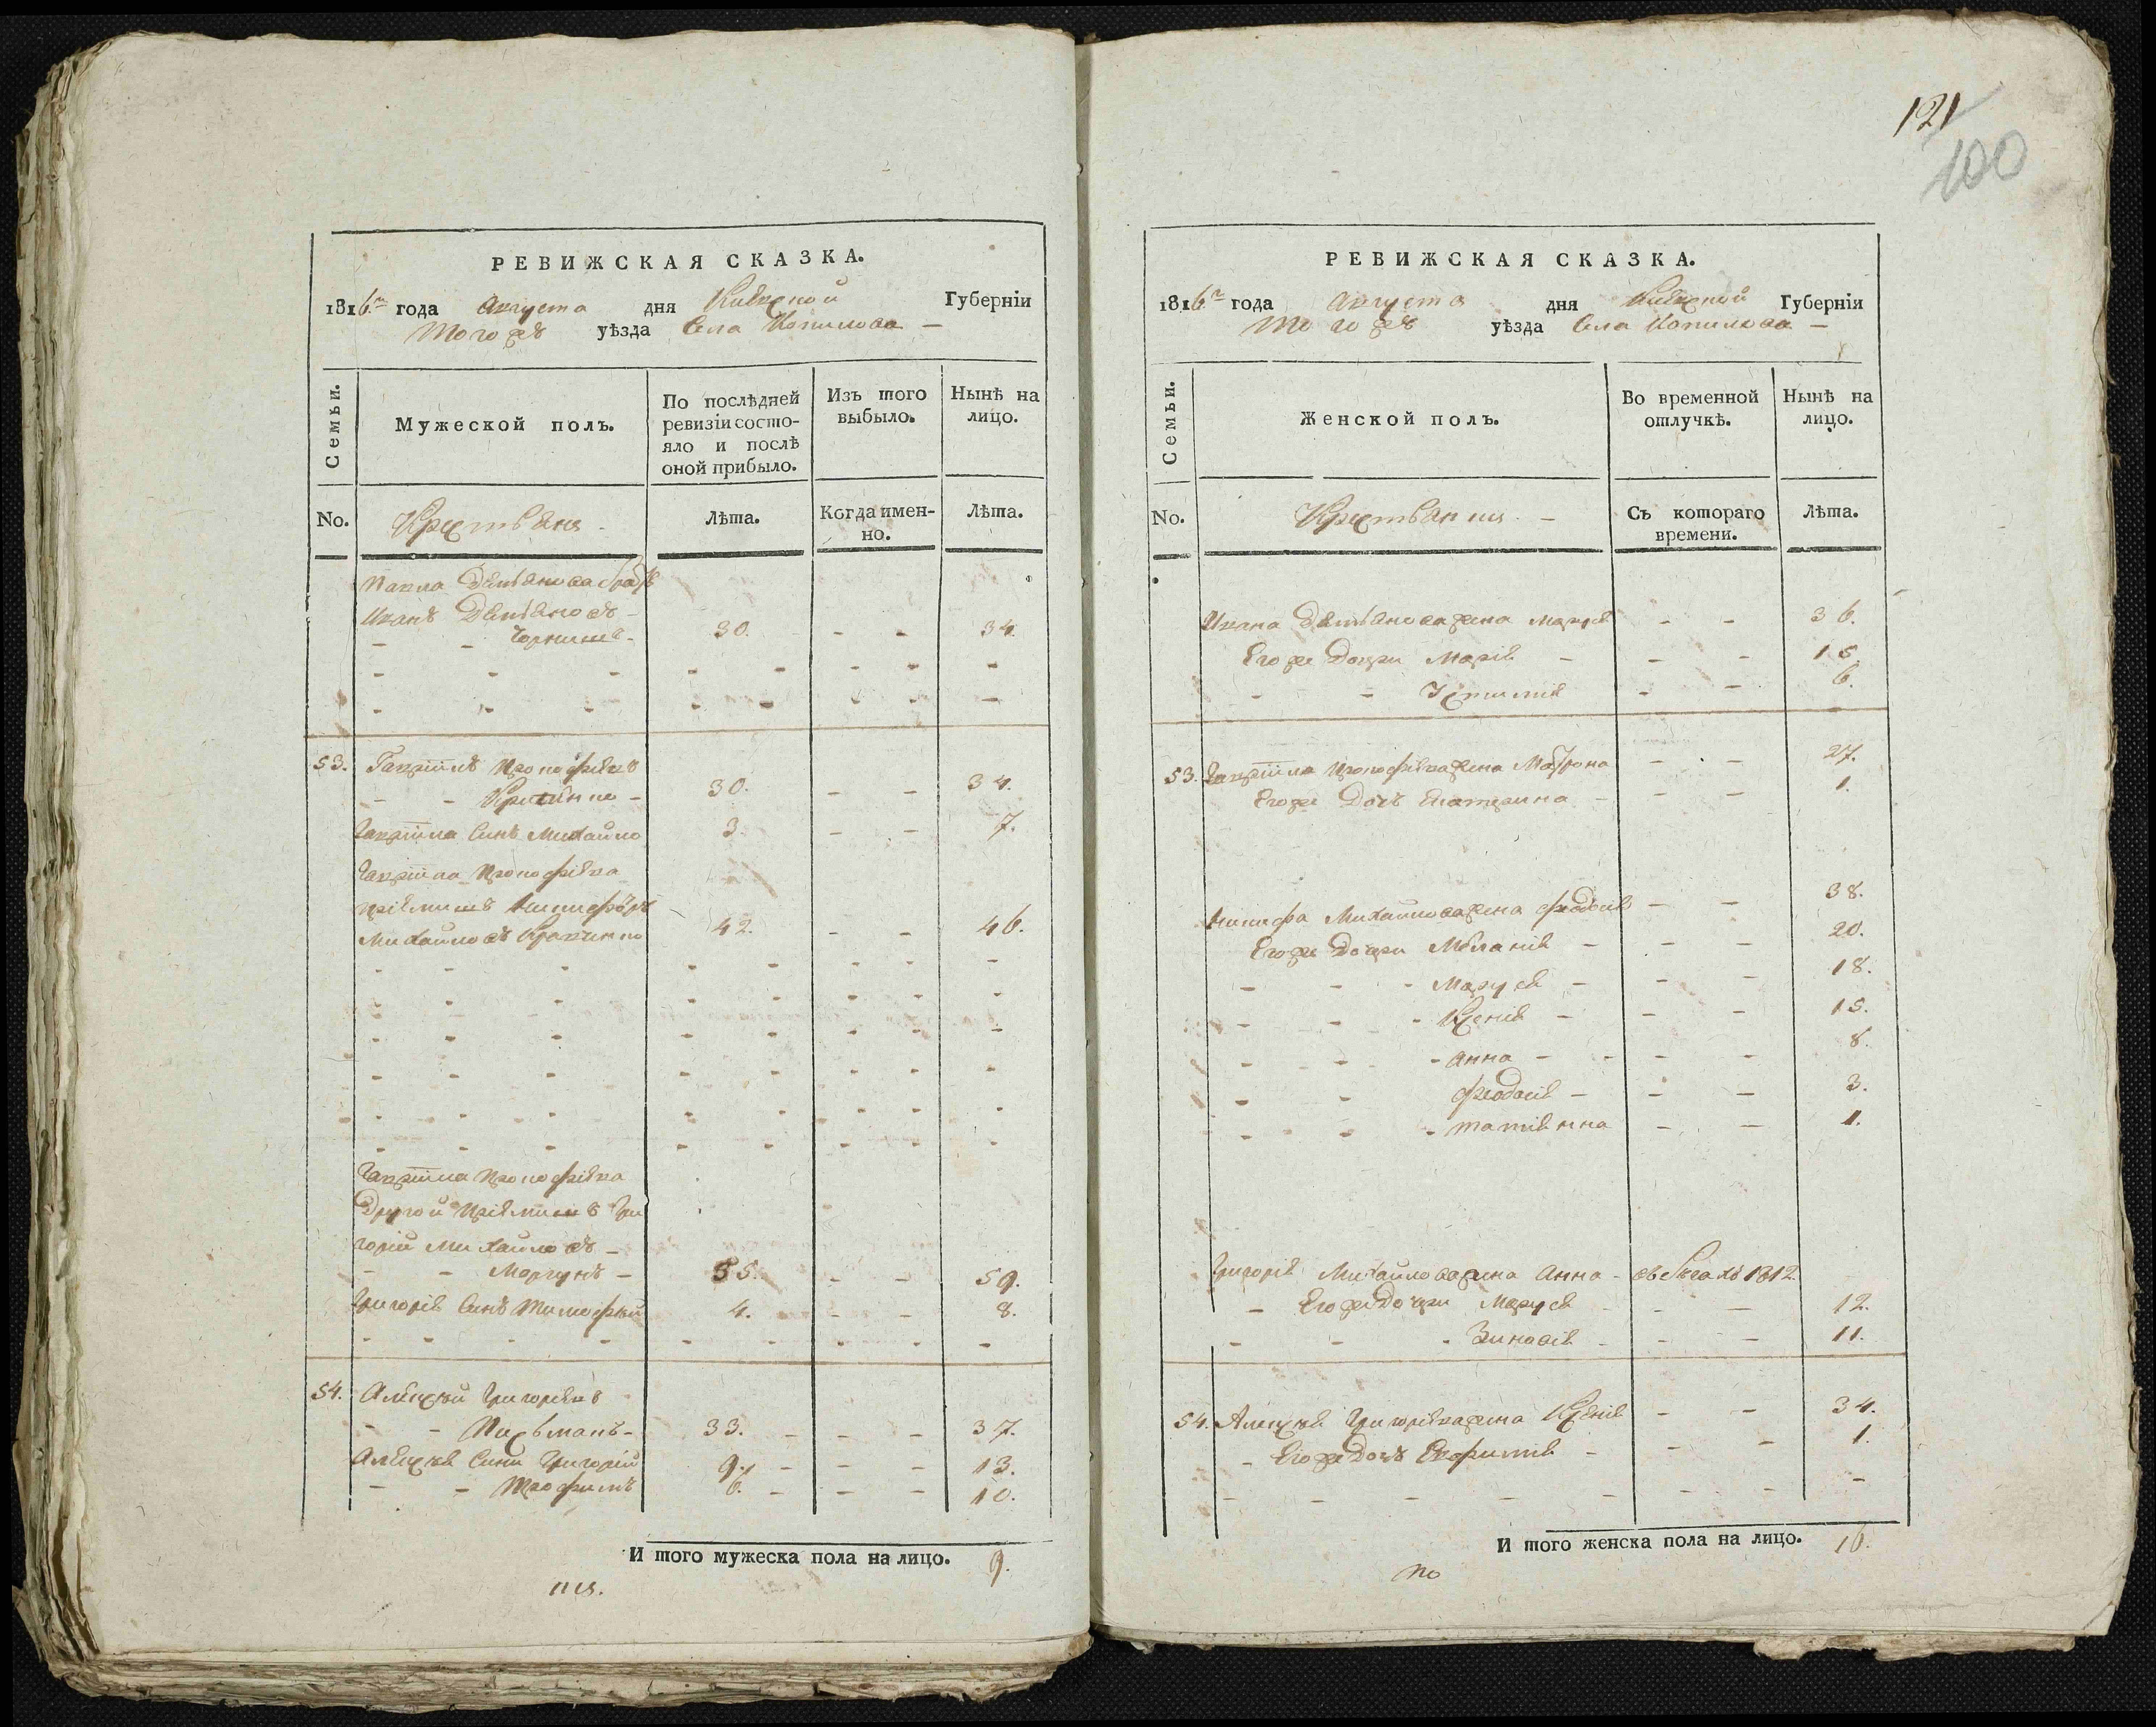 121
100
РЕВИЖСКАЯ СКАЗКА.
1816го года Августа дня Киевской Губерніи
Тогожъ уѣзда Села Копилова —
Семьи.
Мужеской полъ.
По послѣдней ревизіи состо-
яло и послѣ
оной прибыло.
Изъ того
выбыло.
Нынѣ на
лицо.
No.
Крестьяня
Лѣта.
Когда имен-
но.
Лѣта.
Павла Демьянова братъ
Иванъ Демьяновъ
- - Чорнишъ - 30. - - 34.
53. Гавріилъ Прокофіевъ
- - 30. - - 34.
Гавріила Синъ Михайло 3. - - 7.
Гавріила Прокофіева
пріймишъ Никифоръ
Михайловъ Кравченко 42. - - 46.
Гавріила Прокофіева
Другой Пріймишъ Гри
горій Михайловъ -
- - Моргунъ - 55. - - 59.
Григорія Синъ Тимофѣй 4. - - 8.
54. Алексѣй Григоріевъ
- - Письманъ - 33. - - 37.
Алексѣя Сини Григорій 9. - - 13.
- - Трофимъ 6. - - 10.
И того мужеска пола на лицо. 9.
РЕВИЖСКАЯ СКАЗКА.
1816го года Августа дня Киевской Губерніи
Тогожъ уѣзда Села Копилова —
Семьи.
Женской полъ.
Во временной
отлучкѣ.
Нынѣ на
лицо.
No.
Крестьянки
Съ котораго
времени.
Лѣта.
Ивана Демьянова жена - - 36.
Его же Дочри Марія - - 15.
- - Устимія - - 6.
53. Гавріила Прокофіева жена Матрона - - 27.
Его же Дочъ Екатерина - - 1.
Никифа Михайлова жена Феодосія - - 38.
Его же Дочри Меланія - - 20.
- - Маруся - - 18.
- - Ксенія - - 15.
- - Анна - - 8.
- - Феодосія - - 3.
- - татіянна - - 1.
Григорія Михайлова жена Анна - 1812.
- Его же Дочри Маруся - - 12.
- - Зиновія - - 11.
54. Алексѣя Григоріева жена Ксенія - - 34.
- Его же Дочъ Евфимія - - 1.
И того женска пола на лицо. 16.
по